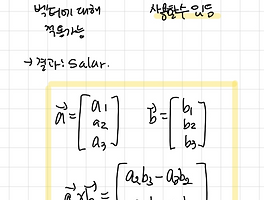 벡터에 대해 사용할수 있음
적용가능
→ 결과: Salar.
a⃗ = [a₁ a₂ a₃] b⃗ = [b₁ b₂ b₃]
a⃗ × b⃗ = [a₂b₃ - a₃b₂